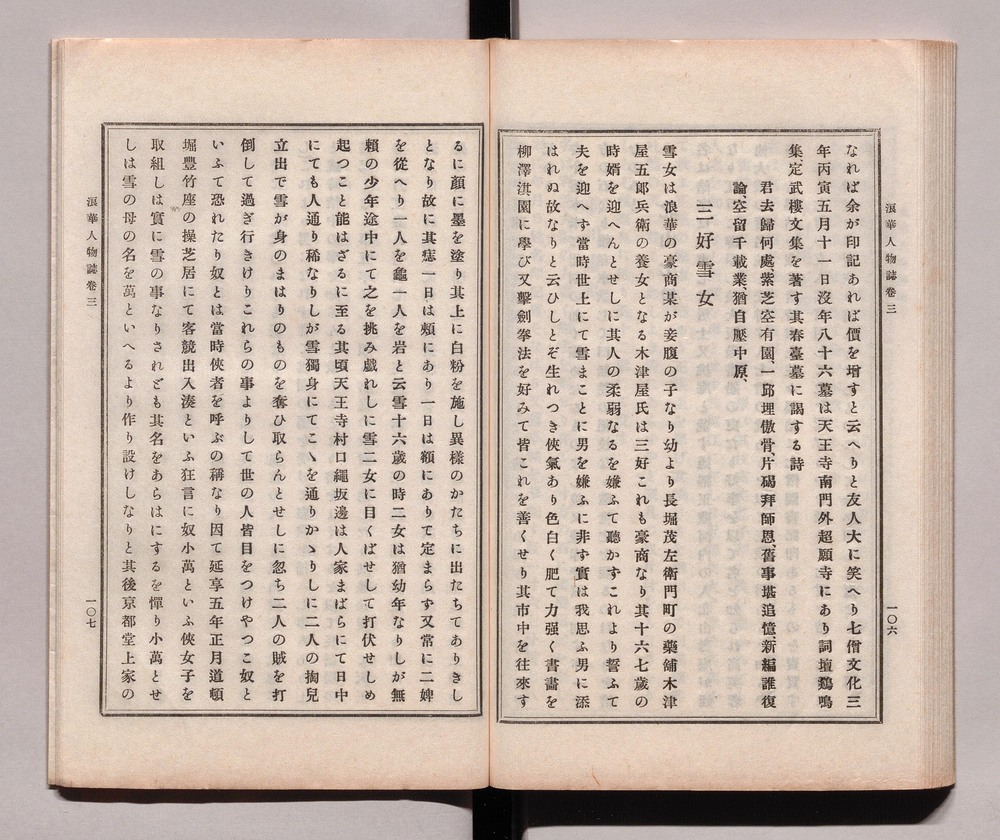 浪華人物誌卷三
一〇六
なれば余が印記あれば價を增すと云へりと友人大に笑へり七僧文化三
年丙寅五月十一日沒年八十六墓は天王寺南門外超願寺にあり詞壇鷄鳴
集、定武樓文集を著す其春臺墓に謁する詩
君去歸何處、紫芝空有園、一邱埋傲骨、片碣拜師恩、舊事堪追憶、新編誰復
論、空留千載業、猶自壓中原、
三好雪女
雪女は浪華の豪商某が妾腹の子なり幼より長堀茂左衞門町の藥舖木津
屋五郞兵衞の養女となる木津屋氏は三好これも豪商なり其十六七歲の
時婿を迎へんとせしに其人の柔弱なるを嫌ふて聽かずこれより誓ふて
夫を迎へす當時世上にて雪まことに男を嫌ふに非す實は我思ふ男に添
はれぬ故なりと云ひしとぞ生れつき俠氣あり色白く肥て力强く書畵を
柳澤淇園に學び又擊劍拳法を好みて皆これを善くせり其市中を往來す
るに顏に墨を塗り其上に白粉を施し異樣のかたちに出たちてありきし
となり故に其痣一日は頰にあり一日は額にありて定まらす又常に二婢
を從へり一人を龜一人を岩と云雪十六歲の時二女は猶幼年なりしが無
賴の少年途中にて之を挑み戯れしに雪二女に目くばせして打伏せしめ
起つこと能はざるに至る其頃天王寺村口繩坂邊は人家まばらにて日中
にても人通り稀なりしが雪獨身にてこゝを通りかゝりしに二人の掏兒
立出で雪が身のまはりのものを奪ひ取らんとせしに忽ち二人の賊を打
倒して過ぎ行きけりこれらの事よりして世の人皆目をつけやつこ奴と
いふて恐れたり奴とは當時俠者を呼ぶの稱なり因て延享五年正月道頓
堀豐竹座の操芝居にて容競出入湊といふ狂言に奴小萬といふ俠女子を
取組しは實に雪の事なりされども其名をあらはにするを憚り小萬とせ
しは雪の母の名を萬といへるより作り設けしなりと其後京都堂上家の
浪華人物誌卷三
一〇七